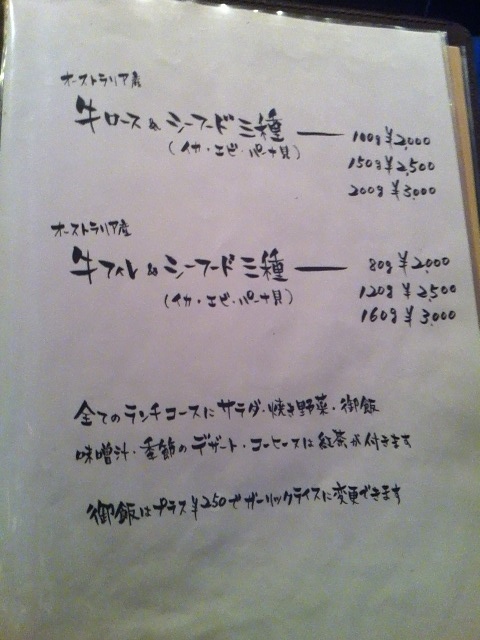 オーストラリア産
牛ロース & シーフード三種 ― 100g ¥2,000
(イカ・エビ・パーナ貝)
150g ¥2,500
200g ¥3,000
オーストラリア産
牛フィレ & シーフード三種 ― 80g ¥2,000
(イカ・エビ・パーナ貝)
120g ¥2,500
160g ¥3,000
全てのランチコースにサラダ・焼き野菜・御飯
味噌汁・季節のデザート・コーヒー又は紅茶が付きます
御飯はプラス¥250でガーリックライスに変更できます